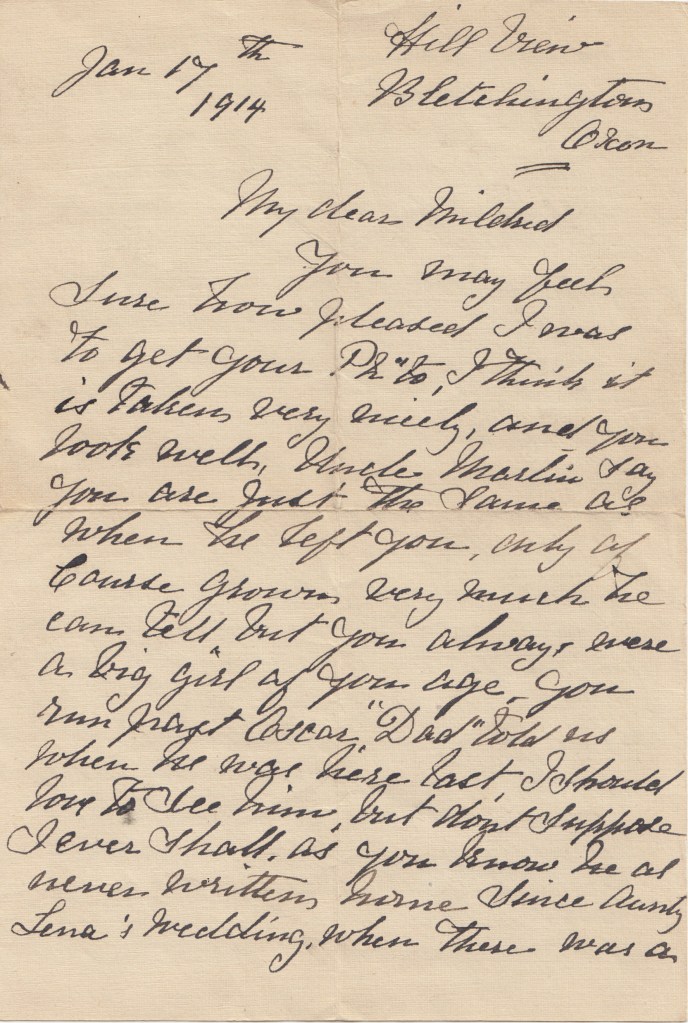 Jan 17th
1914
Hill View
Bletchington
Oxon
My dear Mildred
You may feel
Sure how pleased I was
to get your Ph"to, I think it
is taken very nicely, and you
look well, Uncle Martin say
you are just the same as
when he left you, only of
Course grown very much he
can tell but you always were
a big girl of you age, you
run past Oscar "Dad" told us
when he was here last, I should
love to see him, but dont suppose
I ever shall. as you know he as
never written home since Aunty
Lena's wedding, when there was a